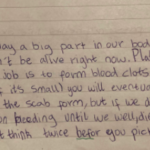 lay a big part in our bod
't be alive right now. Pla
job is to form blood clots
its small) you will eventua
the scab form, but if we d
on bleeding until we well, die
t think twice befor you pick